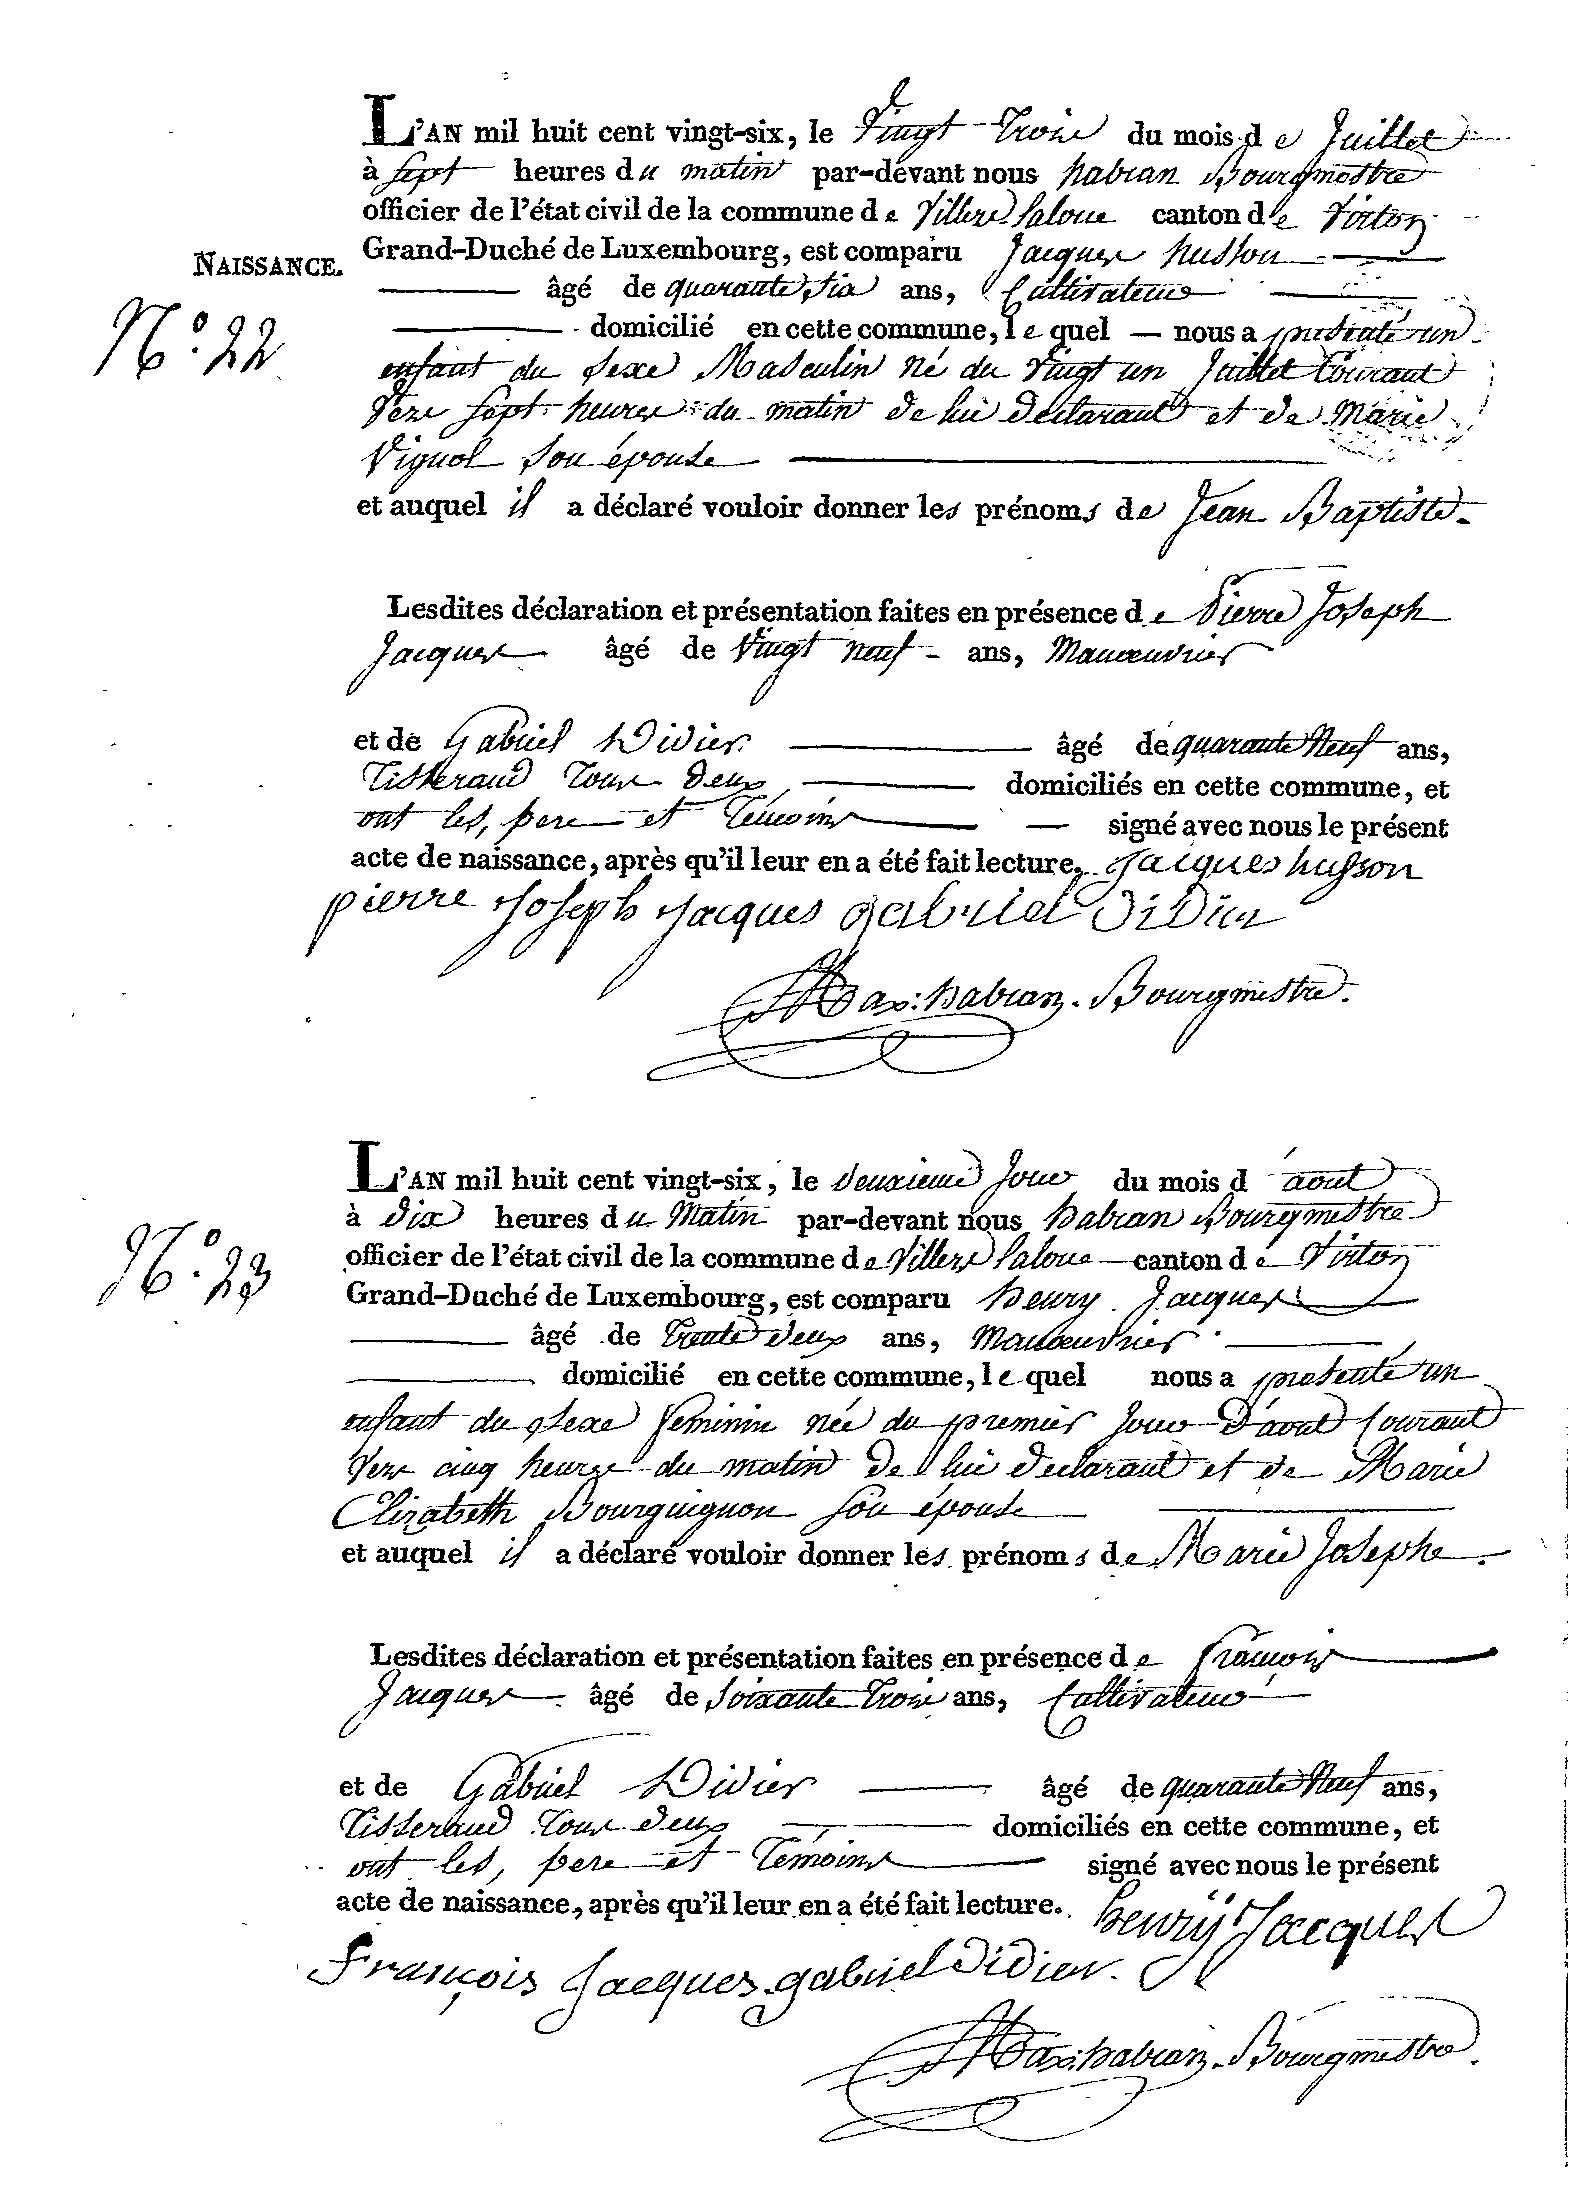 L'AN mil huit cent vingt-six, le Vingt Trois du mois de Juillet
à Sept heures du matin par-devant nous habran Bourgmestre
officier de l'état civil de la commune de Villers Laloue canton de Virton
Grand-Duché de Luxembourg, est comparu Jacques husson
NAISSANCE.
âgé de quarante six ans, Cultivateur
N.o 22
domicilié en cette commune, le quel nous a presenté un
enfant du Sexe Masculin né du vingt un Juillet Courant
Vers Sept heures du matin de lui declarant et de Marie
Vignol Son épouse
et auquel il a déclaré vouloir donner les prénoms de Jean Baptiste.
Lesdites déclaration et présentation faites en présence de Pierre Joseph
Jacques âgé de Vingt neuf ans, Manoeuvrier
et de Gabriel Didier âgé de quarante Neuf ans,
Tisserand Tous deux domiciliés en cette commune, et
ont les, pere et Témoins signé avec nous le présent
acte de naissance, après qu'il leur en a été fait lecture. Jacques husson
pierre Joseph Jacques gabriel Didier
Max: habran. Bourgmestre.
L'AN mil huit cent vingt-six, le deuxieme Jour du mois d'aout
à dix heures du Matin par-devant nous habran Bourgmestre
officier de l'état civil de la commune de Villers Laloue canton de Virton
N.o 23
Grand-Duché de Luxembourg, est comparu henry Jacques
âgé de Trente deux ans, Manoeuvrier
domicilié en cette commune, le quel nous a presenté un
enfant du Sexe feminin née du premier Jour d'aout Courant
Vers cinq heures du matin de lui declarant et de Marie
Elizabeth Bourguignon Son épouse
et auquel il a déclaré vouloir donner les prénoms de Marie Josephe.
Lesdites déclaration et présentation faites en présence de francois
Jacques âgé de Soixante Trois ans, Cultivateur
et de Gabriel Didier âgé de quarante Neuf ans,
Tisserand Tous deux domiciliés en cette commune, et
ont les, pere et Témoins signé avec nous le présent
acte de naissance, après qu'il leur en a été fait lecture. henrÿ Jacques
François Jacques gabriel Didier.
Max: habran. Bourgmestre.